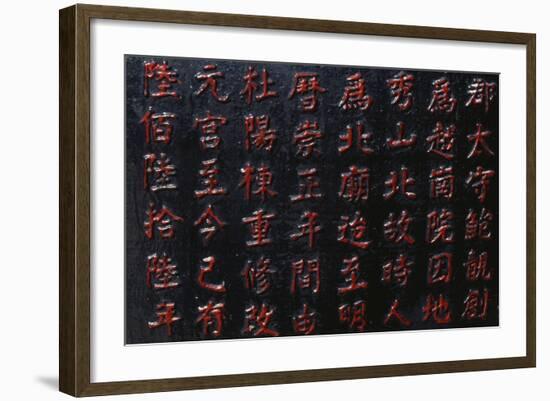 郡太守鮑靚創
爲越南院因地
秀山北故時人
爲北廟迨至明
曆崇正年間由
杜陽棟重修改
元宮至今已有
陸佰陸拾陸年